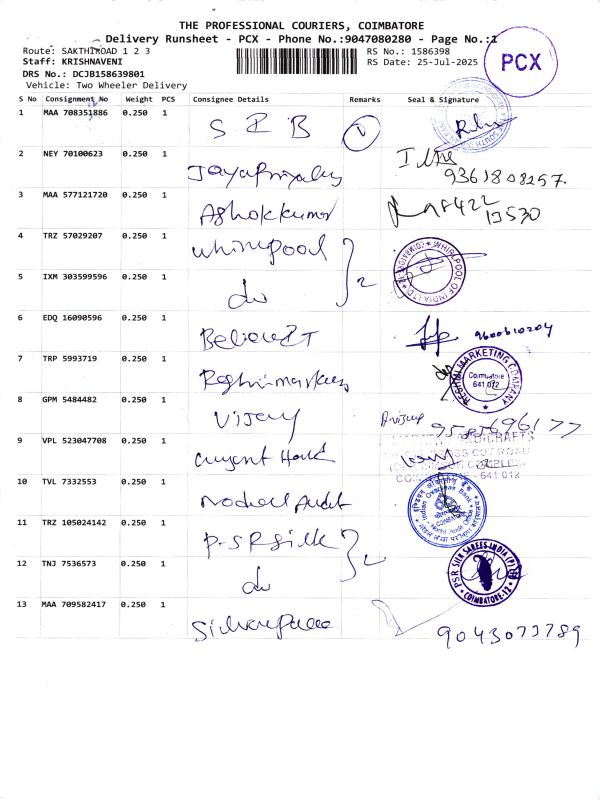 THE PROFESSIONAL COURIERS, COIMBATORE
Delivery Runsheet - PCX - Phone No.:9047080280 - Page No.:1
Route: SAKTHIROAD 1 2 3
RS No.: 1586398
Staff: KRISHNAVENI
RS Date: 25-Jul-2025
PCX
DRS No.: DCJB158639801
Vehicle: Two Wheeler Delivery
S No Consignment No Weight PCS Consignee Details Remarks Seal & Signature
1 MAA 708351886 0.250 1 S I B
2 NEY 70100623 0.250 1 Jayapriya
9361808257.
3 MAA 577121720 0.250 1 Ashokkumar
4 TRZ 57029207 0.250 1 Whirlpool 2
WHIRLPOOL OF INDIA LTD. COIMBATORE
5 IXM 303599596 0.250 1 do
6 EDQ 16090596 0.250 1
9600610204
7 TRP 5993719 0.250 1
MARKETING COMPANY
Coimbatore
641 012
8 GPM 5484482 0.250 1 Vijay
9585696177
9 VPL 523047708 0.250 1
COMPLEX
641 012
10 TVL 7332553 0.250 1 Audit
Indian Overseas Bank
11 TRZ 105024142 0.250 1 P.S.R Silk 2
12 TNJ 7536573 0.250 1 do
PSR SILK SAREES INDIA (P) LTD
COIMBATORE-12
13 MAA 709582417 0.250 1
9043073789